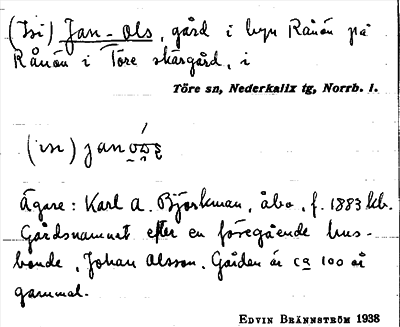 (Isi) Jan-Ols, gård i byn Rånön på
Rånön i Töre skärgård, i
Töre sn, Nederkalix tg, Norrb. l.
Ägare: Karl A. Björkman, åbo, f. 1883 hb.
Gårdsnamnet efter en föregående hus-
bonde, Johan Olsson. Gården är ca 100 år
gammal.
EDVIN BRÄNNSTRÖM 1938